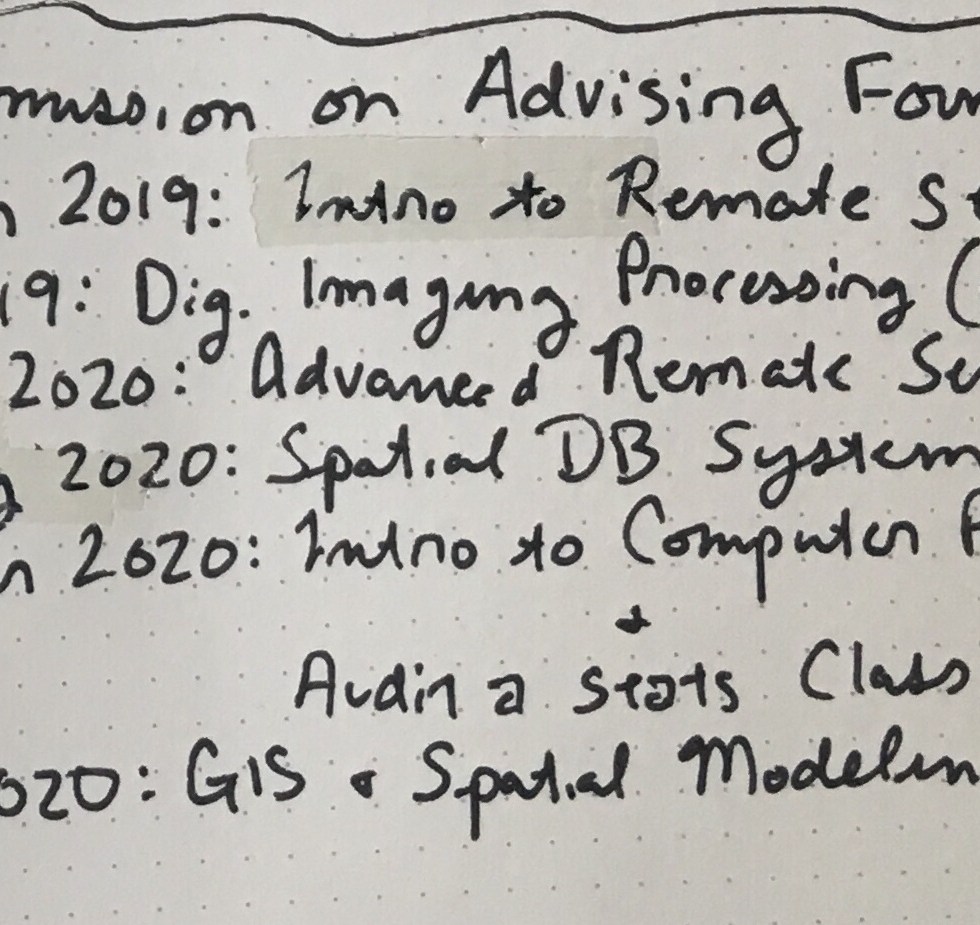 mission on Advising Four
n 2019: Intro to Remote S
19: Dig. Imaging Processing (
2020: Advanced Remote Se
2020: Spatial DB System
n 2020: Intro to Computer P
+
Audit a Stats Class
020: GIS & Spatial Modelin